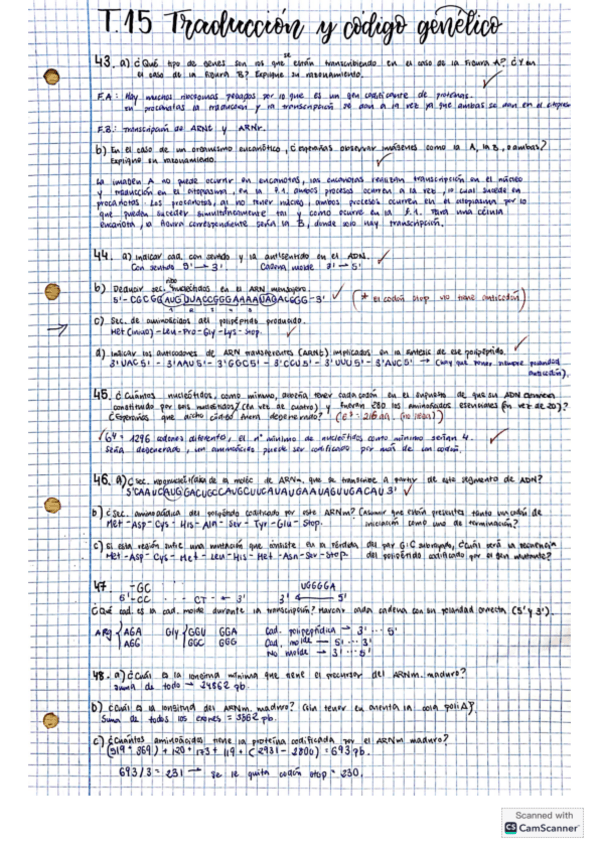 T.15 Traducción y código genético
43. a) ¿Qué tipo de genes son los que se están transcribiendo en el caso de la Figura A? ¿Y en
el caso de la Figura B? Explique su razonamiento.
F.A: Hay muchos ribosomas pegados por lo que es un gen codificante de proteínas.
En procariotas la traducción y la transcripción se dan a la vez ya que ambas se dan en el citoplasma
F.B: Transcripción de ARNt y ARNr.
b) En el caso de un organismo eucariótico, ¿esperarías observar imágenes como la A, la B, o ambas?
Explique su razonamiento.
La imagen A no puede ocurrir en eucariotas, las eucariotas realizan transcripción en el núcleo
y traducción en el citoplasma, en la F.1. ambos procesos ocurren a la vez, lo cual sucede en
procariotas. Los procariotas, al no tener núcleo, ambos procesos ocurren en el citoplasma por lo
que pueden suceder simultáneamente tal y como ocurre en la F.1. Para una célula
eucariota, la figura correspondiente sería la B, donde solo hay transcripción.
44. a) Indicar cad. con sentido y la antisentido en el ADN.
Con sentido 5' → 3' Cadena molde 3' → 5'
b) Deducir sec. ribonucleótidos en el ARN mensajero.
5'-CGCGGAUGUUACCGGGAAAAUAGACGGG-3' (* El codón stop no tiene anticodón)
c) Sec. de aminoácidos del polipéptido producido.
Met (inicio) - Leu - Pro - Gly - Lys - Stop.
d) Indicar los anticodones de ARN transferentes (ARNt) implicados en la síntesis de ese polipéptido.
3'UAC5' - 3'AAU5' - 3'GGC5' - 3'CCU5' - 3'UUU5' - 3'AUC5' → (hay que poner siempre polaridad
anticodón).
45. ¿Cuántos nucleótidos, como mínimo, debería tener cada codón en el supuesto de que su ADN estuviera
constituido por seis nucleótidos? (en vez de cuatro) y fueran 250 los aminoácidos esenciales (en vez de 20)?
¿Esperarías que dicho código fuera degenerado? (6³ = 216 aa. (no llega))
6⁴ = 1296 codones diferente, el nº mínimo de nucleótidos como mínimo serían 4.
Sería degenerado, los aminoácidos puede ser codificado por más de un codón.
46. a) ¿Sec. de la moléc. de ARNm, que se transcribe a partir de este segmento de ADN?
5'CAAUCAUGGACUGCCAUGCUUCAUAUGAAUAGUUGACAU 3'
b) ¿Sec. aminoacídica del péptido codificado por este ARNm? (Asumir que están presentes tanto un codón de
Met - Asp - Cys - His - Ala - Ser - Tyr - Glu - Stop. iniciación como uno de terminación?
c) Si esta región sufre una mutación que consiste en la pérdida del par G:C subrayado, ¿cuál será la secuencia
Met - Asp - Cys - Met - Leu - His - Met - Asn - Ser - Stop. del polipéptido codificado por el gen mutante?
47. -GC UGGGGA
5'-CC ··· - CT - ← 3' 3' ← 5'
¿Qué cad. es la cad. molde durante la transcripción? Marcar cada cadena con su polaridad correcta (5' y 3').
Arg { AGA Gly { GGU GGA Cad. polipeptídica → 3' ··· 5'
AGG GGC GGG Cad. molde → 5' ··· 3'
No molde → 3' ··· 5'
48. a) ¿Cuál es la longitud mínima que tiene el precursor del ARNm maduro?
Suma de todo → 24562 pb.
b) ¿Cuál es la longitud del ARNm. maduro? (Sin tener en cuenta la cola poliA)
Suma de todos los exones = 3562 pb.
c) ¿Cuántos aminoácidos tiene la proteína codificada por el ARNm maduro?
+ 120 + 173 + 119 + (2931 - 2800) = 693 pb.
693/3 = 231 → se le quita codón stop = 230.
Scanned with
CS CamScanner